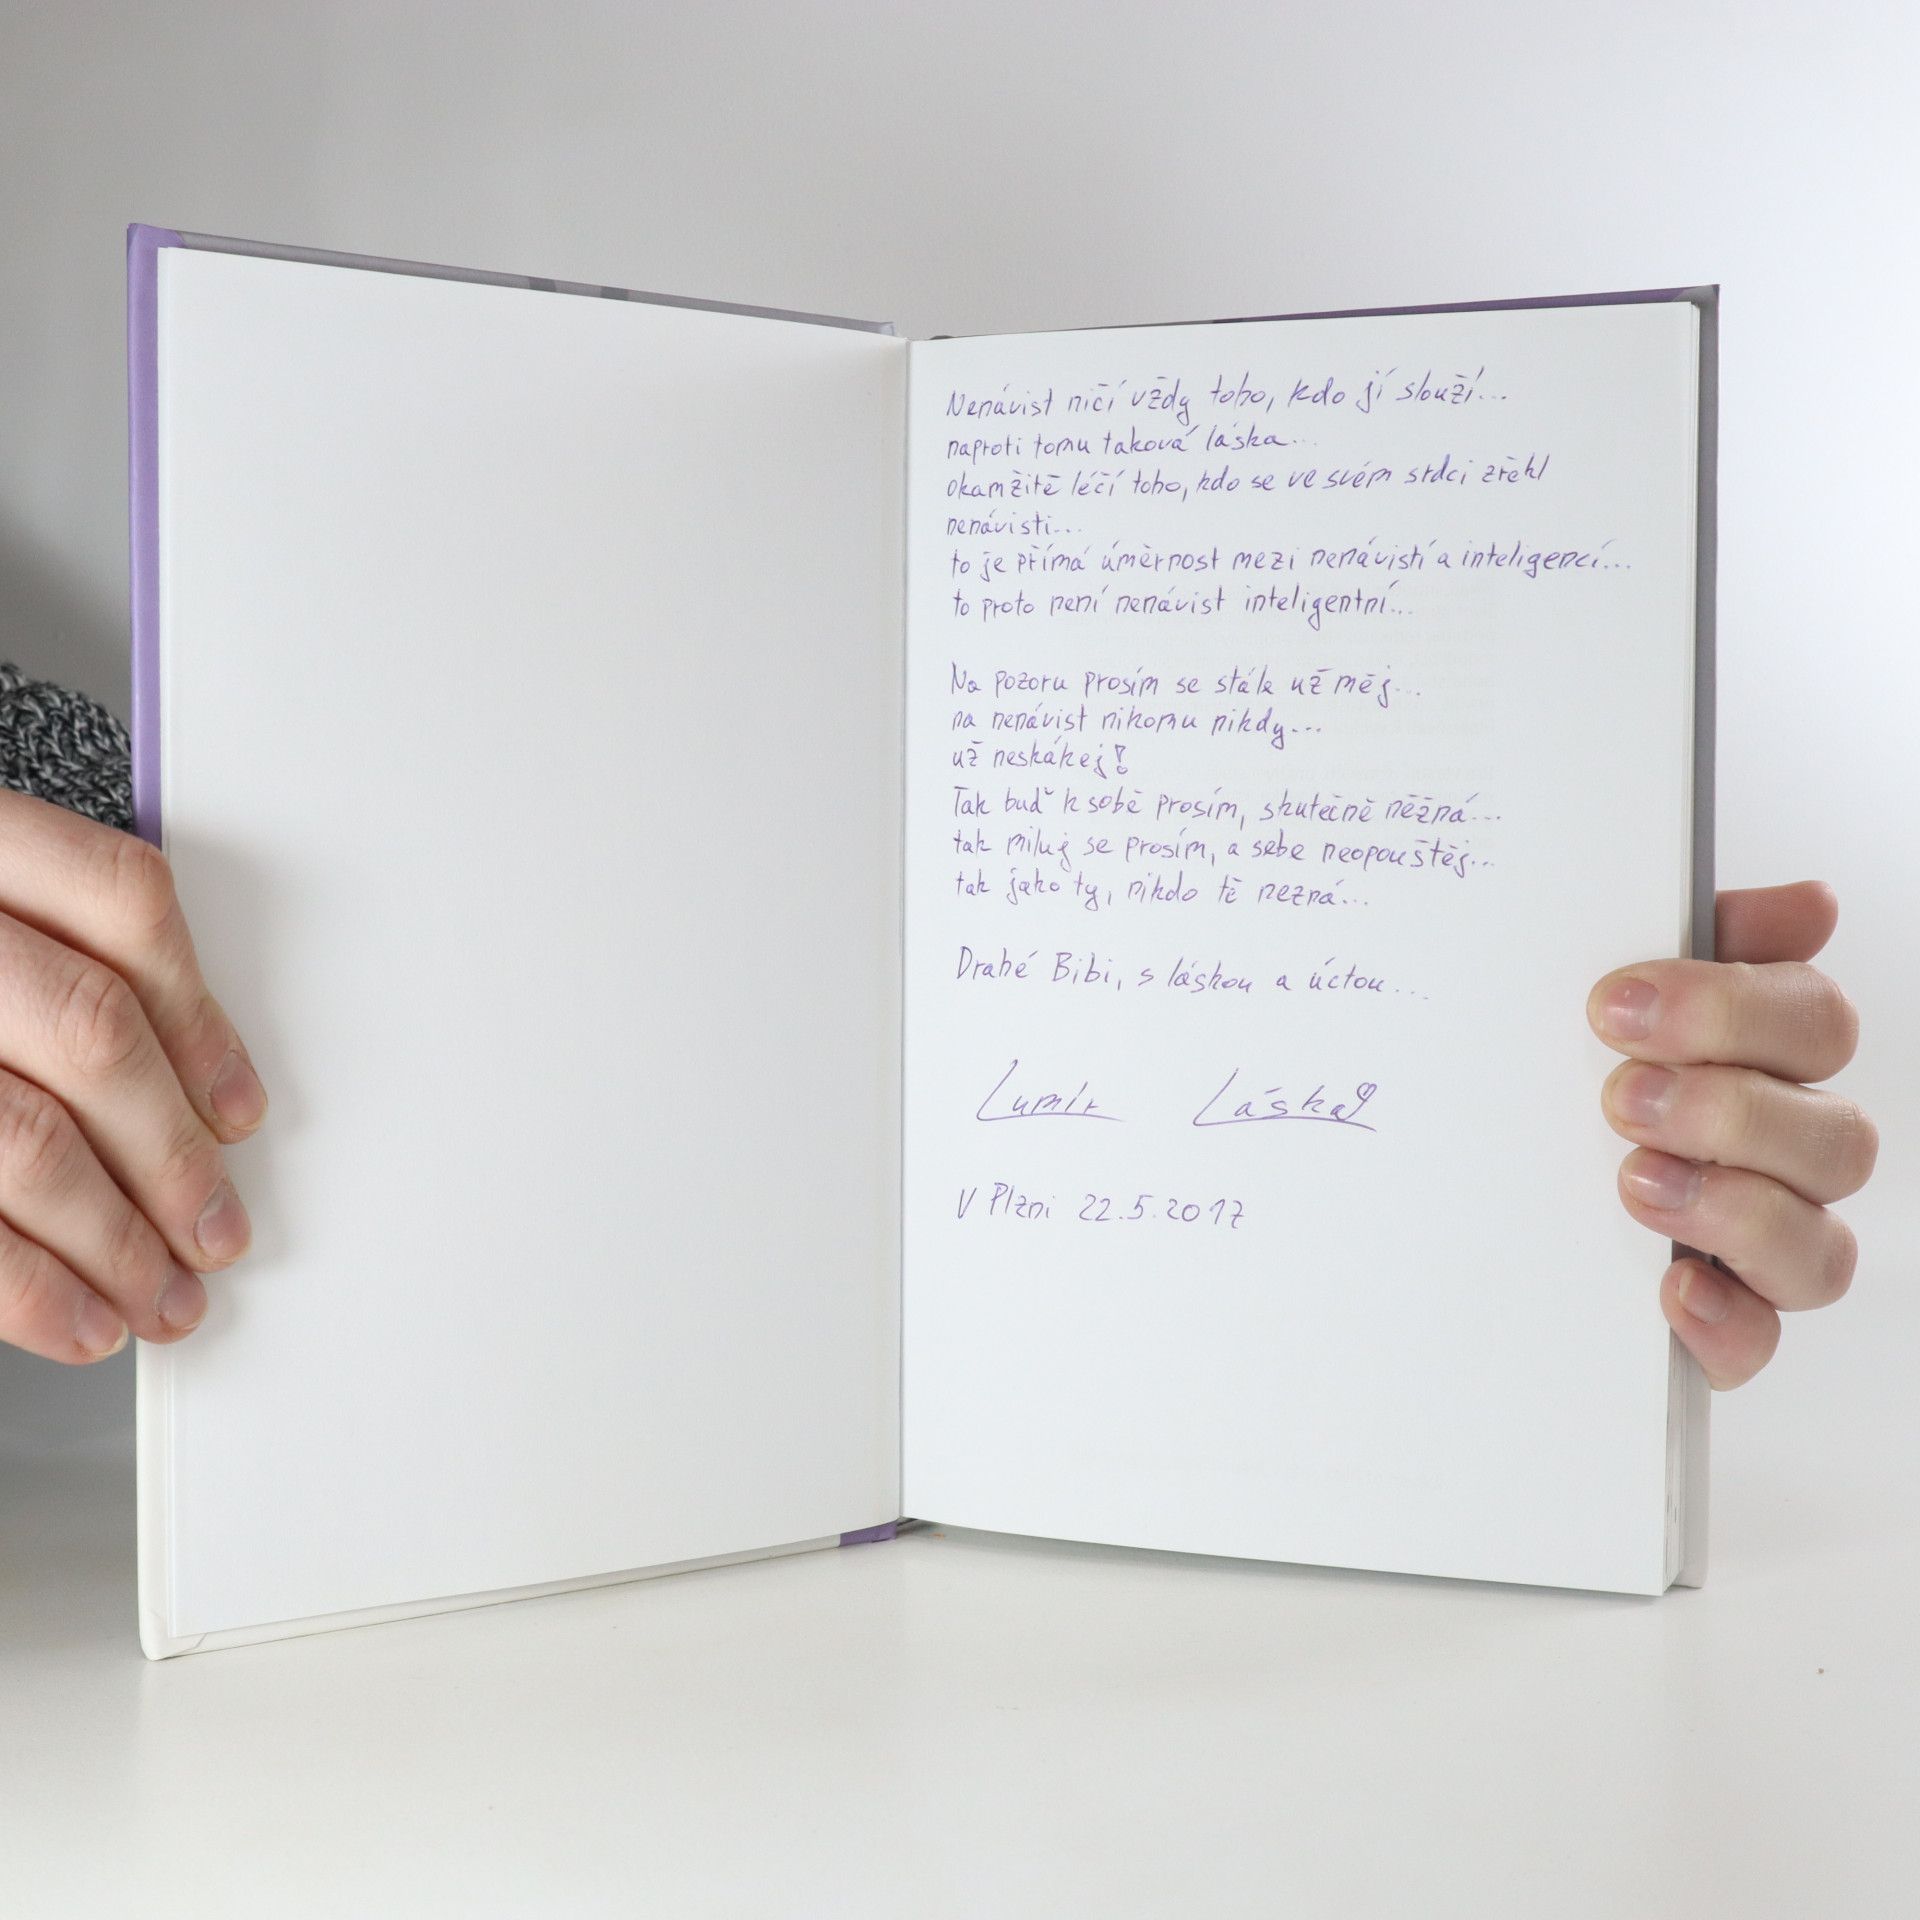 Nenávist ničí vždy toho, kdo jí slouží...
naproti tomu taková láska...
okamžitě léčí toho, kdo se ve svém srdci zřekl
nenávisti...
to je přímá úměrnost mezi nenávistí a inteligencí...
to proto není nenávist inteligentní...
Na pozoru prosím se stále už měj...
na nenávist nikomu nikdy...
už neskákej!
Tak buď k sobě prosím, skutečně něžná...
tak miluj se prosím, a sebe neopouštěj...
tak jako ty, nikdo tě nezná...
Drahé Bibi, s láskou a úctou...
Lumír Láska
V Plzni 22.5.2017